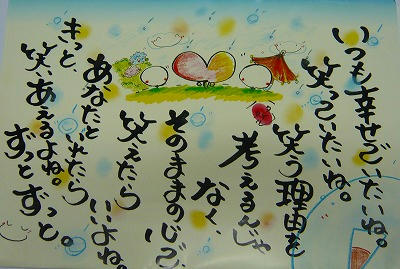 いつも幸せでいたいね。
笑っていたいね。
笑う理由を
考えるんじゃ
なく、
そのままの心で、
笑えたら
いいよね。
あなたといれたら
きっと、
笑いあえるよね。
ずっとずっと。